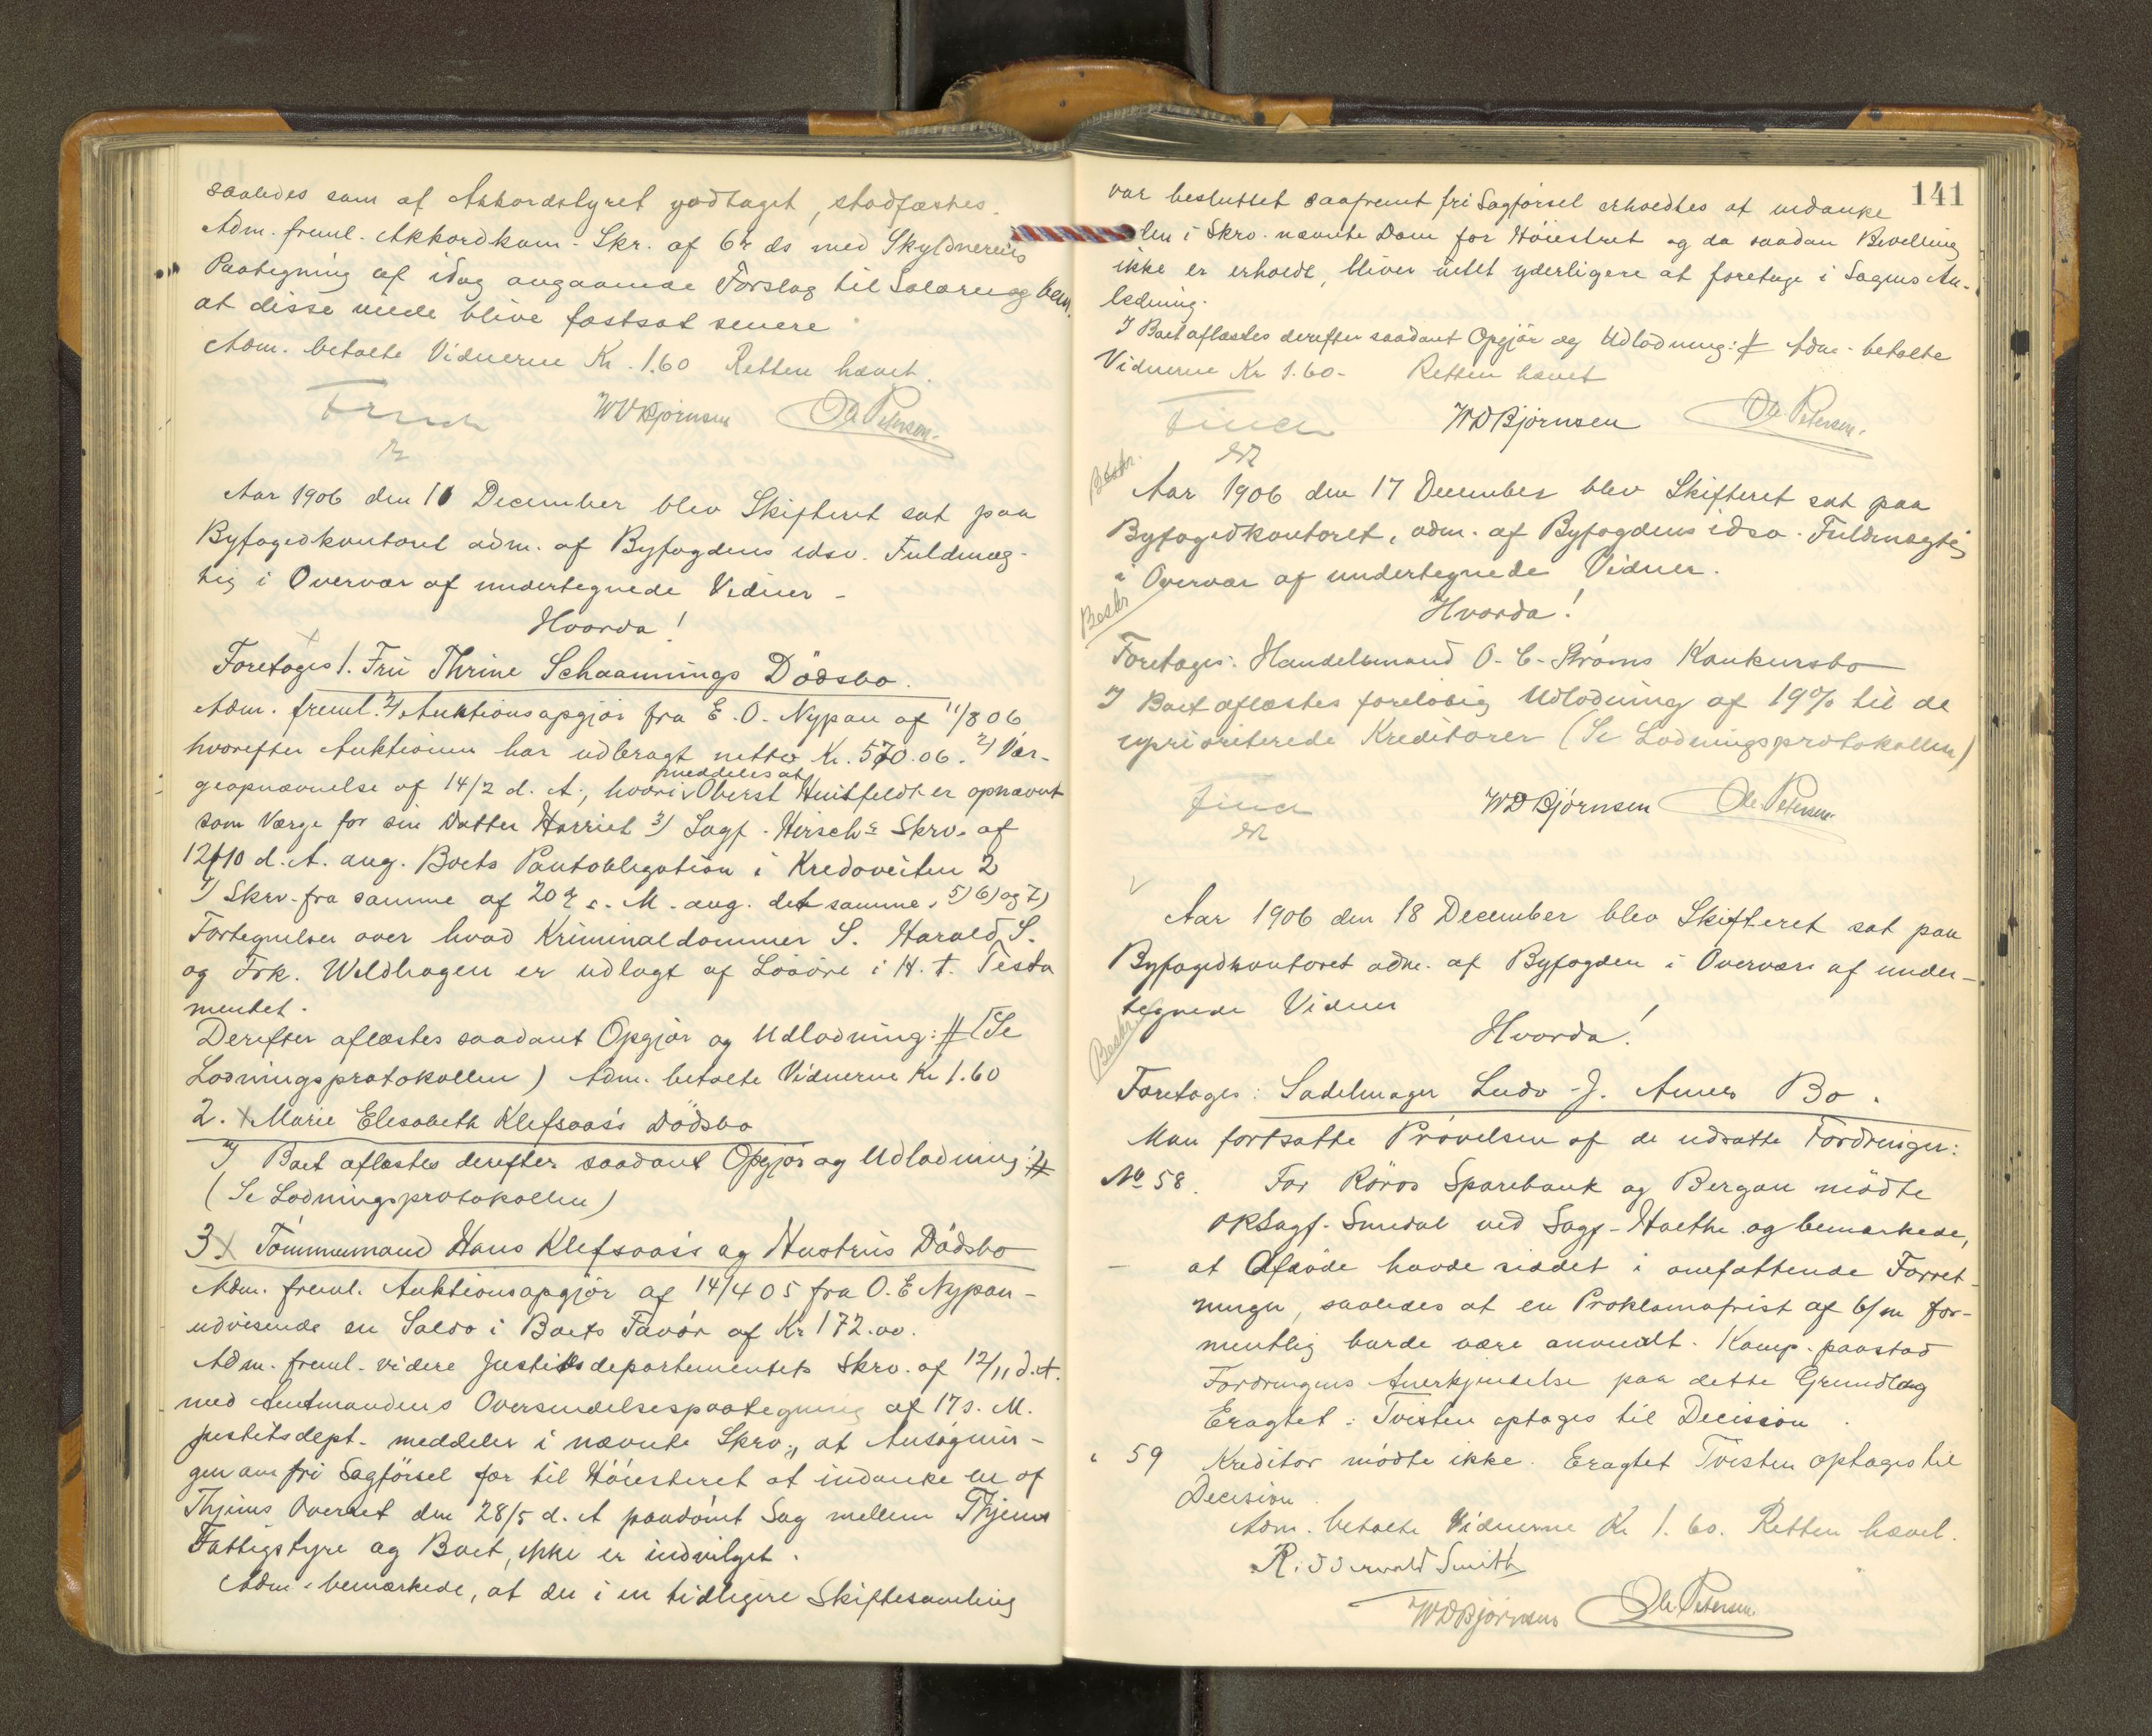 saaledes som af Akkordstyret godtaget, stadfæstes.
Adm. freml. Akkordkom. Skr. af 6te ds med Skyldnerens
Paategning af idag angaaende Forslag til Salærer og bem.
at disse vilde blive fastsat senere
Adm. betalte Vidnerne Kr. 1.60 Retten hævet.
WDBjørnsen Ole Petersen.
Aar 1906 den 11 December blev Skifteret sat paa
Byfogedkontoret adm. af Byfogdens edsv. Fuldmæg-
tig i Overvær af undertegnede Vidner -
Hvorda!
Foretoges 1. Fru Thrine Schaannings Dödsbo.
Adm. freml. 1) Auktionsopgjør fra E. O. Nypan af 11/8 06
hvorefter Auktionen har udbragt netto Kr. 570.06. 2) Vær-
meddeles at
geopnævnelse af 14/2 d. A., hvori Oberst Huitfeldt er opnævnt
som Værge for sin Datter Harriet 3) Sagf. Hirschs Skrv. af
12/10 d. A. ang. Boets Pantobligation i Kredoveiten 2
4) Skrv. fra samme af 20de s. M. ang. det samme. 5) 6) og 7)
Fortegnelser over hvad Kriminaldommer S. Harald S.
og Frk. Wildhagen er udlagt af Løsøre i H. t. Testa
mentet.
Derefter aflæstes saadant Opgjör og Udlodning: # (Se
Lodningsprotokollen) Adm. betalte Vidnerne Kr 1.60
2. x Marie Elisabeth Klefsaas's Dödsbo
I Boet aflæstes derefter saadant Opgjør og Udlodning: #
(Se Lodningsprotokollen)
3 x Tömmermand Hans Klefsaas's og Hustrus Dödsbo
Adm. freml. Auktionsopgjør af 14/4 05 fra O. E Nypan -
udvisende en Saldo i Boets Favør af Kr 172.00.
Adm. freml. videre Justitsdepartementets Skrv. af 12/11 d. A.
med Amtmandens Oversendelsespaategning af 17 s. M.
Justitsdept. meddeler i nævnte Skrv., at Ansøgnin-
gen om fri Sagførsel for til Høiesteret at indanke en af
Thjems Overret den 28/5 d. A paadömt Sag mellem Thjems
Fattigstyre og Boet, ikke er indvilget.
Adm. bemærkede, at der i en tidligere Skiftesamling
141
var besluttet saafremt fri Sagførsel erholdtes at indanke
den i Skrv. nævnte Dom for Høiesteret og da saadan Bevilling
ikke er erholdt, bliver intet yderligere at foretage i Sagens An-
ledning.
I Boet aflæstes derefter saadant Opgjør og Udlodning: # Adm. betalte
Vidnerne Kr 1.60 - Retten hævet
WDBjørnsen Ole Petersen.
Beskr.
Aar 1906 den 17 December blev Skifteret sat paa
Byfogedkontoret, adm. af Byfogdens edsv. Fuldmægtig
i Overvær af undertegnede Vidner.
Beskr
Hvorda!
Foretoges: Handelsmand O. C. Strøms Konkursbo
I Boet aflæstes foreløbig Udlodning af 19% til de
uprioriterede Kreditorer (Se Lodningsprotokollen)
WDBjørnsen Ole Petersen
Aar 1906 den 18 December blev Skifteret sat paa
Byfogedkontoret adm. af Byfogden i Overvær af under-
tegnede Vidner
Beskr
Hvorda!
Foretoges: Sadelmager Ludv. J. Aunes Bo.
Man fortsatte Prøvelsen af de udsatte Fordringer:
No 58. For Röros Sparebank og Bergan mödte
ORSagf. Smedal ved Sagf. Haethe og bemærkede,
at Afdöde havde siddet i omfattende Forret-
ninger, saaledes at en Proklamafrist af 6/m for-
mentlig burde være anvendt. Komp. paastod
Fordringens Anerkjendelse paa dette Grundlag
Eragtet: Tvisten optages til Decision.
" 59 Kreditor mødte ikke. Eragtet Tvisten optages til
Decision.
Adm. betalte Vidnerne Kr 1.60. Retten hævet.
WDBjørnsen Ole Petersen